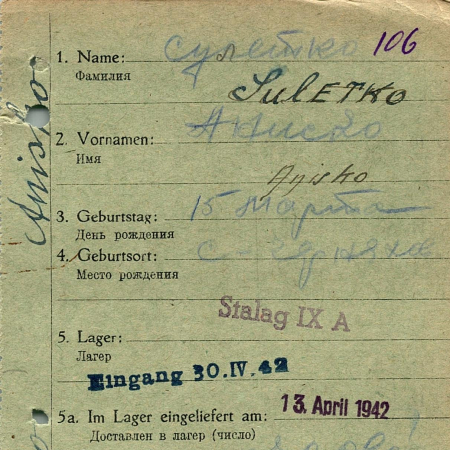 1. Name: Сулетко 106
Фамилия
SulETKO
2. Vornamen: Аниско
Имя
Anisko
3. Geburtstag: 15 марта
День рождения
4. Geburtsort: с-
Место рождения
Stalag IX A
5. Lager:
Лагер
Eingang 30.IV.42
5a. Im Lager eingeliefert am: 13. April 1942
Доставлен в лагер (число)
Anisko